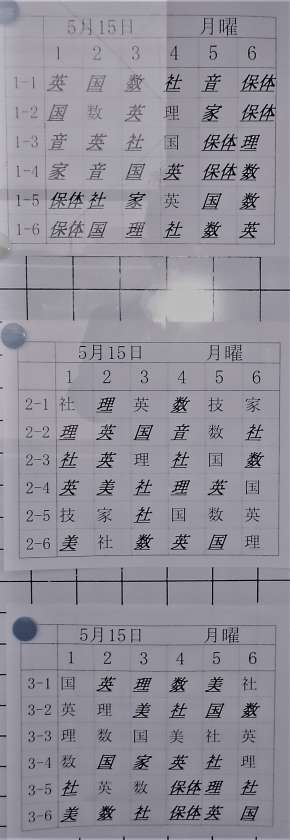 5月15日 月曜
1 2 3 4 5 6
1-1 英 国 数 社 音 保体
1-2 国 数 英 理 家 保体
1-3 音 英 社 国 保体 理
1-4 家 音 国 英 保体 数
1-5 保体 社 家 英 国 数
1-6 保体 国 理 社 数 英
5月15日 月曜
1 2 3 4 5 6
2-1 社 理 英 数 技 家
2-2 理 英 国 音 数 社
2-3 社 英 理 社 国 数
2-4 英 美 社 理 英 国
2-5 技 家 社 国 数 英
2-6 美 社 数 英 国 理
5月15日 月曜
1 2 3 4 5 6
3-1 国 英 理 数 美 社
3-2 英 理 美 社 国 数
3-3 理 数 国 美 社 英
3-4 数 国 家 英 社 理
3-5 社 英 数 保体 理 社
3-6 美 数 社 保体 英 国